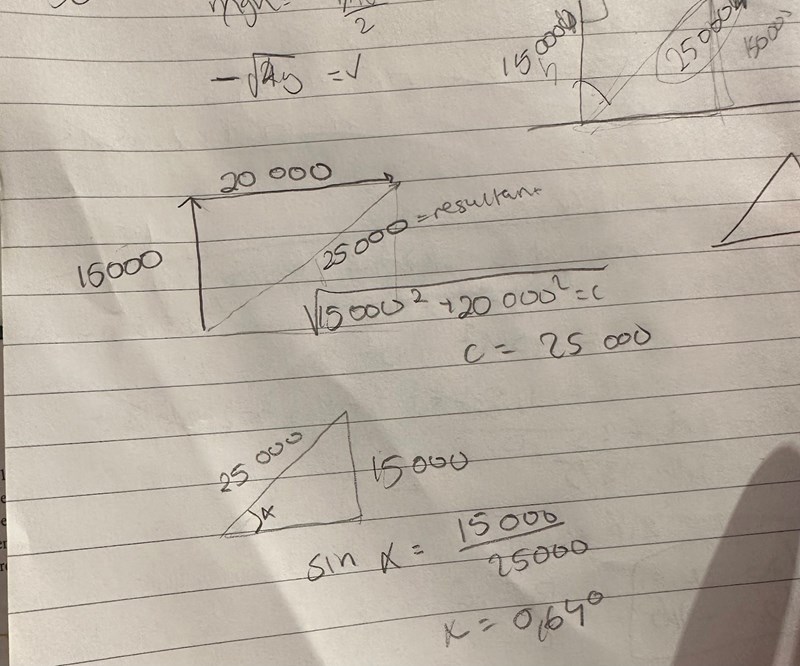 2
-√4y = √
15000
h
25000
15000
20 000
15000
25000 = resultant
√15000² + 20 000² = c
c = 25 000
25 000
15000
α
sin α = 15 000 / 25000
α = 0,64°